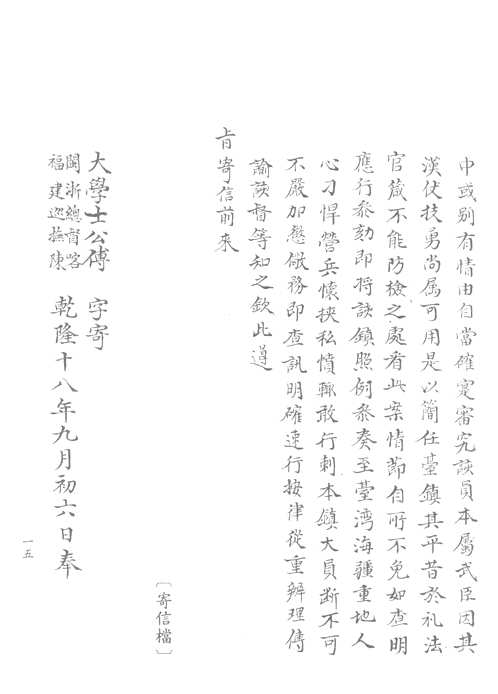 中或别有情由自當確寔審究該員本屬武臣因其
漢仗技勇尚属可用是以簡任臺鎮其平昔於礼法
官箴不能防檢之處看此案情節自所不免如查明
應行叅劾即将該鎮照例叅奏至臺湾海疆重地人
心刁悍營兵懷挾私憤輙敢行刺本鎮大員斷不可
不嚴加懲儆務即查訊明確速行按律從重辦理傳
諭該督等知之欽此遵
旨寄信前来
〔寄信檔〕
大學士公傅 字寄
閩浙總督喀
福建巡撫陳
乾隆十八年九月初六日奉
一五